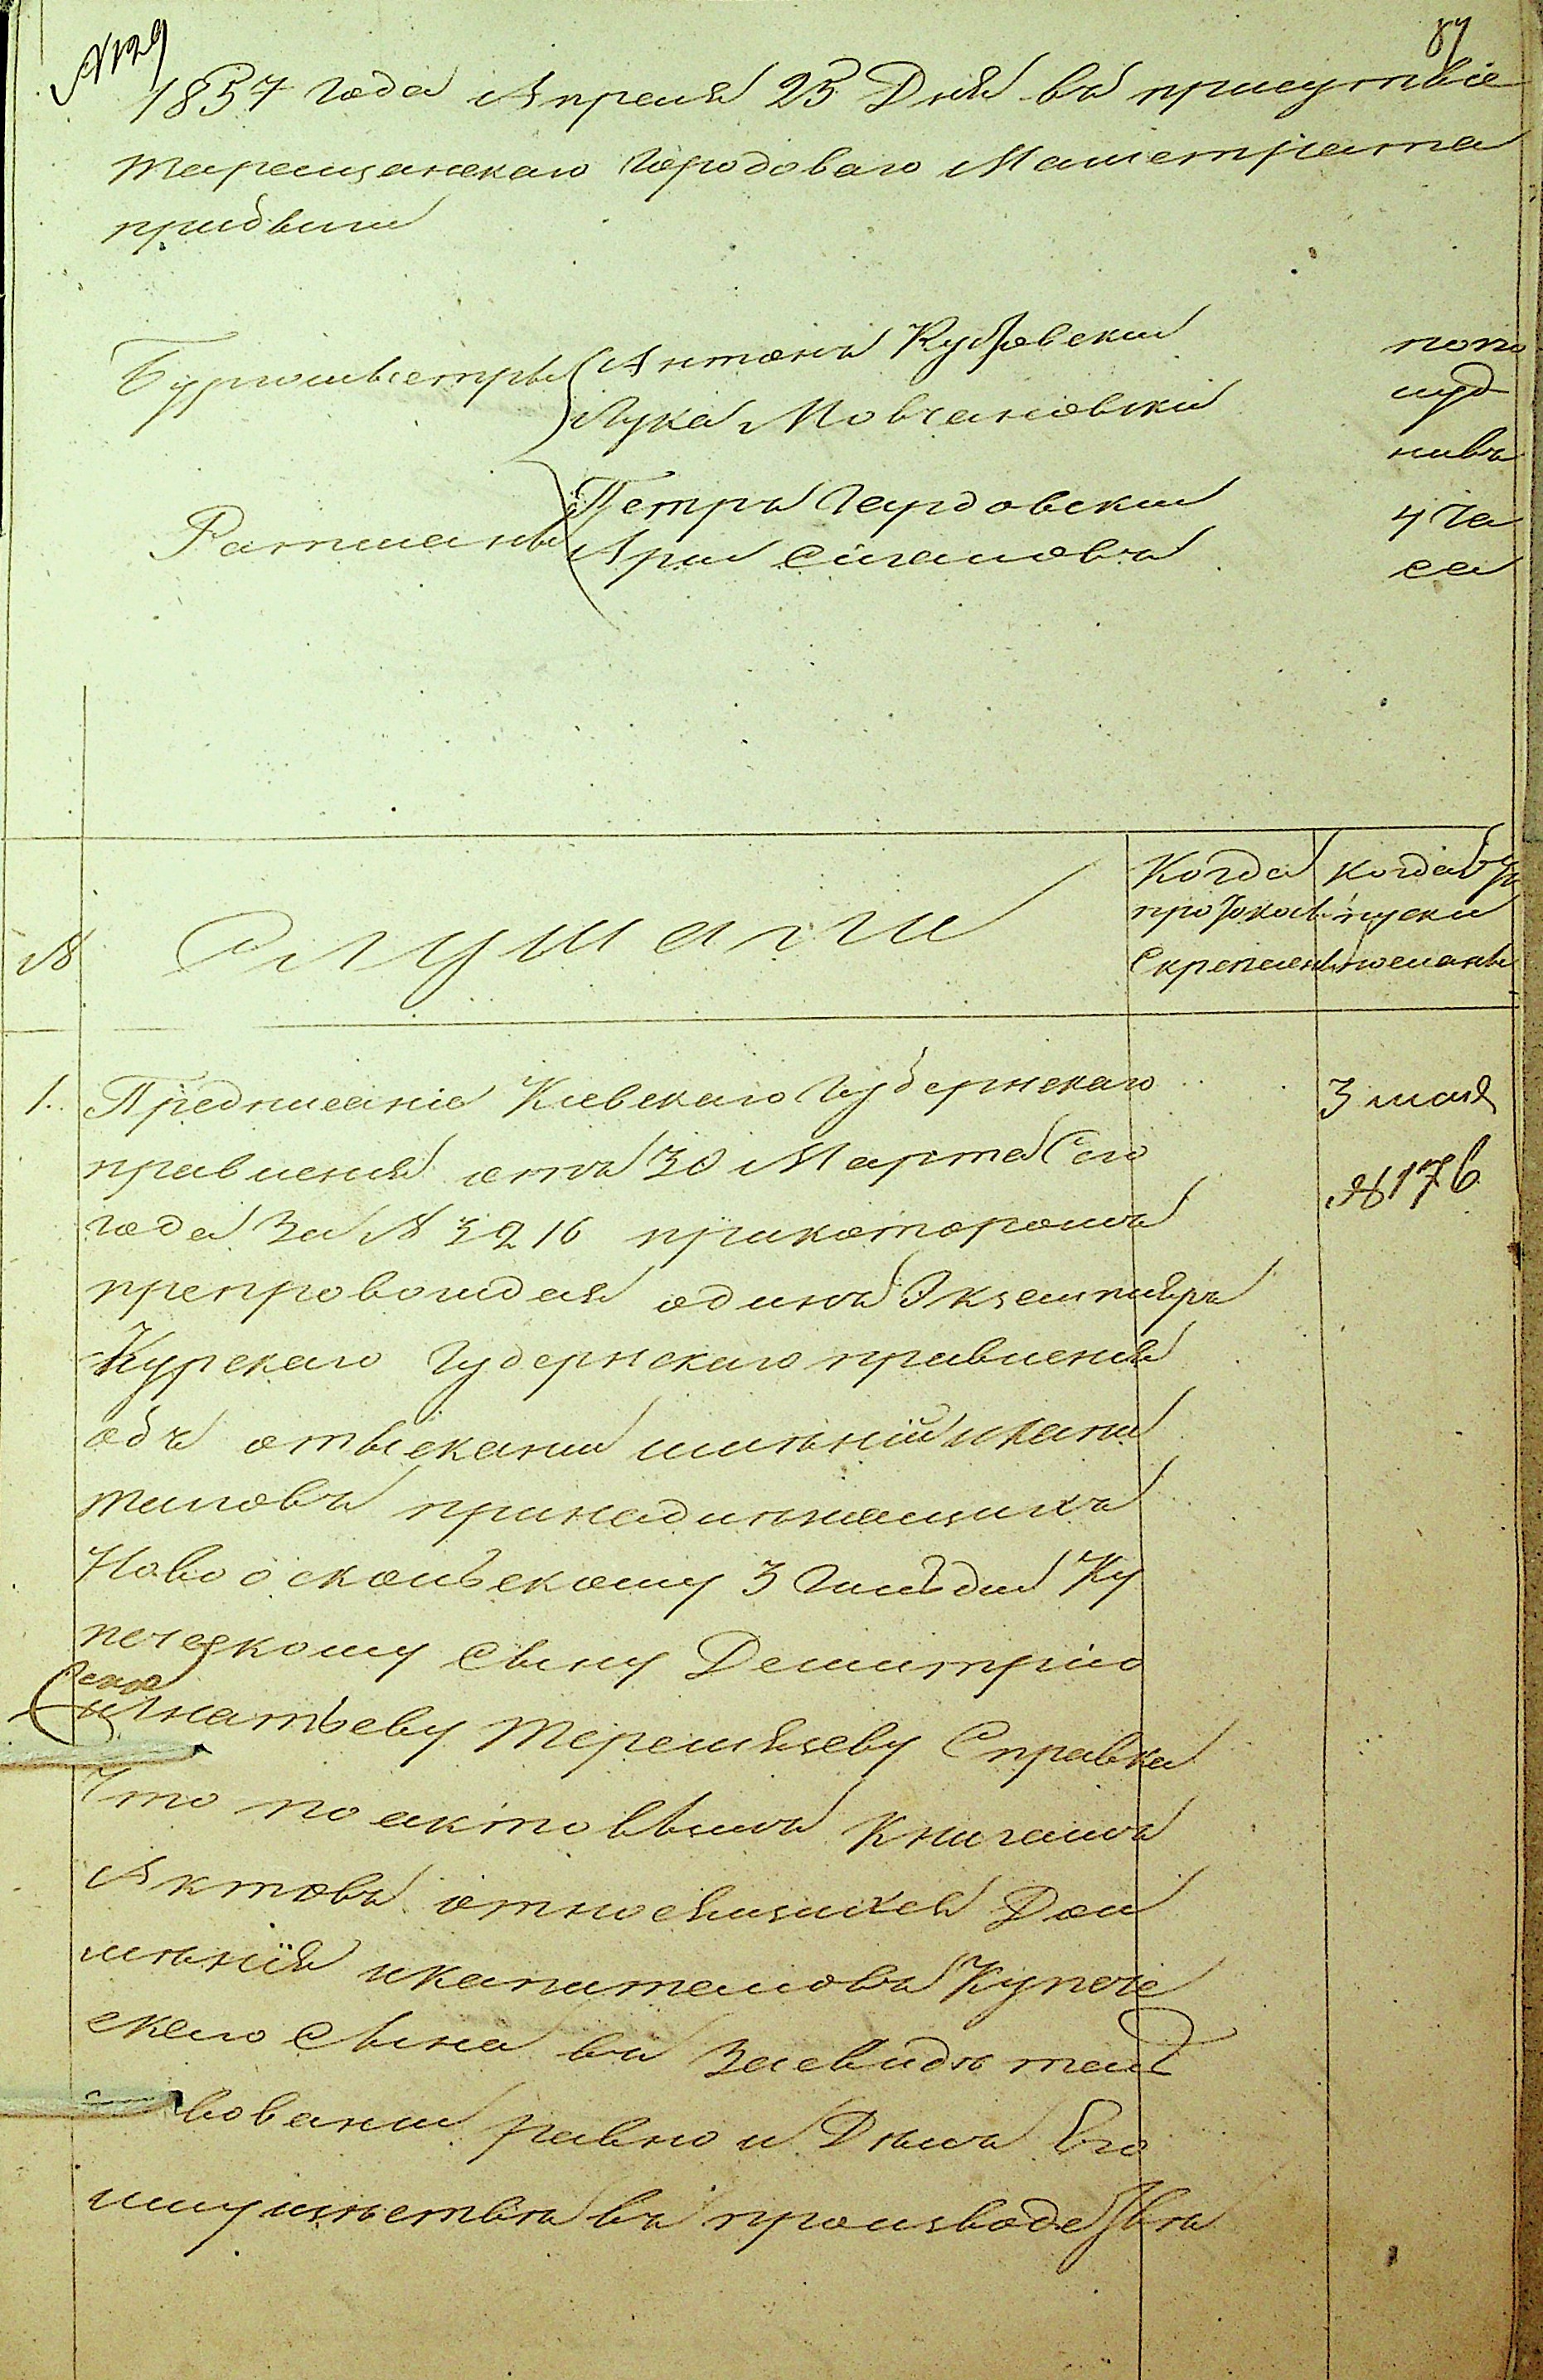 № 29
87
1857 года Апреля 25 Дня въ присутвіе
таращанскаго городоваго Магистрата
прибыли
Бургомистры Антонъ Кубовскии
Лука Мовчановскіи
Ратманы Петръ Гардовскии
Ари Сигаловъ
попо
луд
нивъ
4 ча
са
№
Слушали
Когда
протокол
Скреплены
когда от
пуски
посланы
1. Предписаніе Киевскаго Губернскаго
правленія отъ 30 Марта Сего
года За № 3216 прикоторомъ
препровождая одинъ Экземпляръ
Курскаго Губернскаго правленія
объ отысканіи имѣній икапи
таловъ принадлѣжащихъ
Новооскольскому 3 Гильдіи Ку
печескому сыну Демитрію
Игнатьеву Терешьеву Справка
Что по актовымъ книгамъ
Актовъ относящихся До и
мѣнія икапиталовъ Купече
скаго сына въ Засвидѣтель
вованіи равно и Дѣлъ Его
имущѣствѣ въ производствѣ
3 мая
№ 176